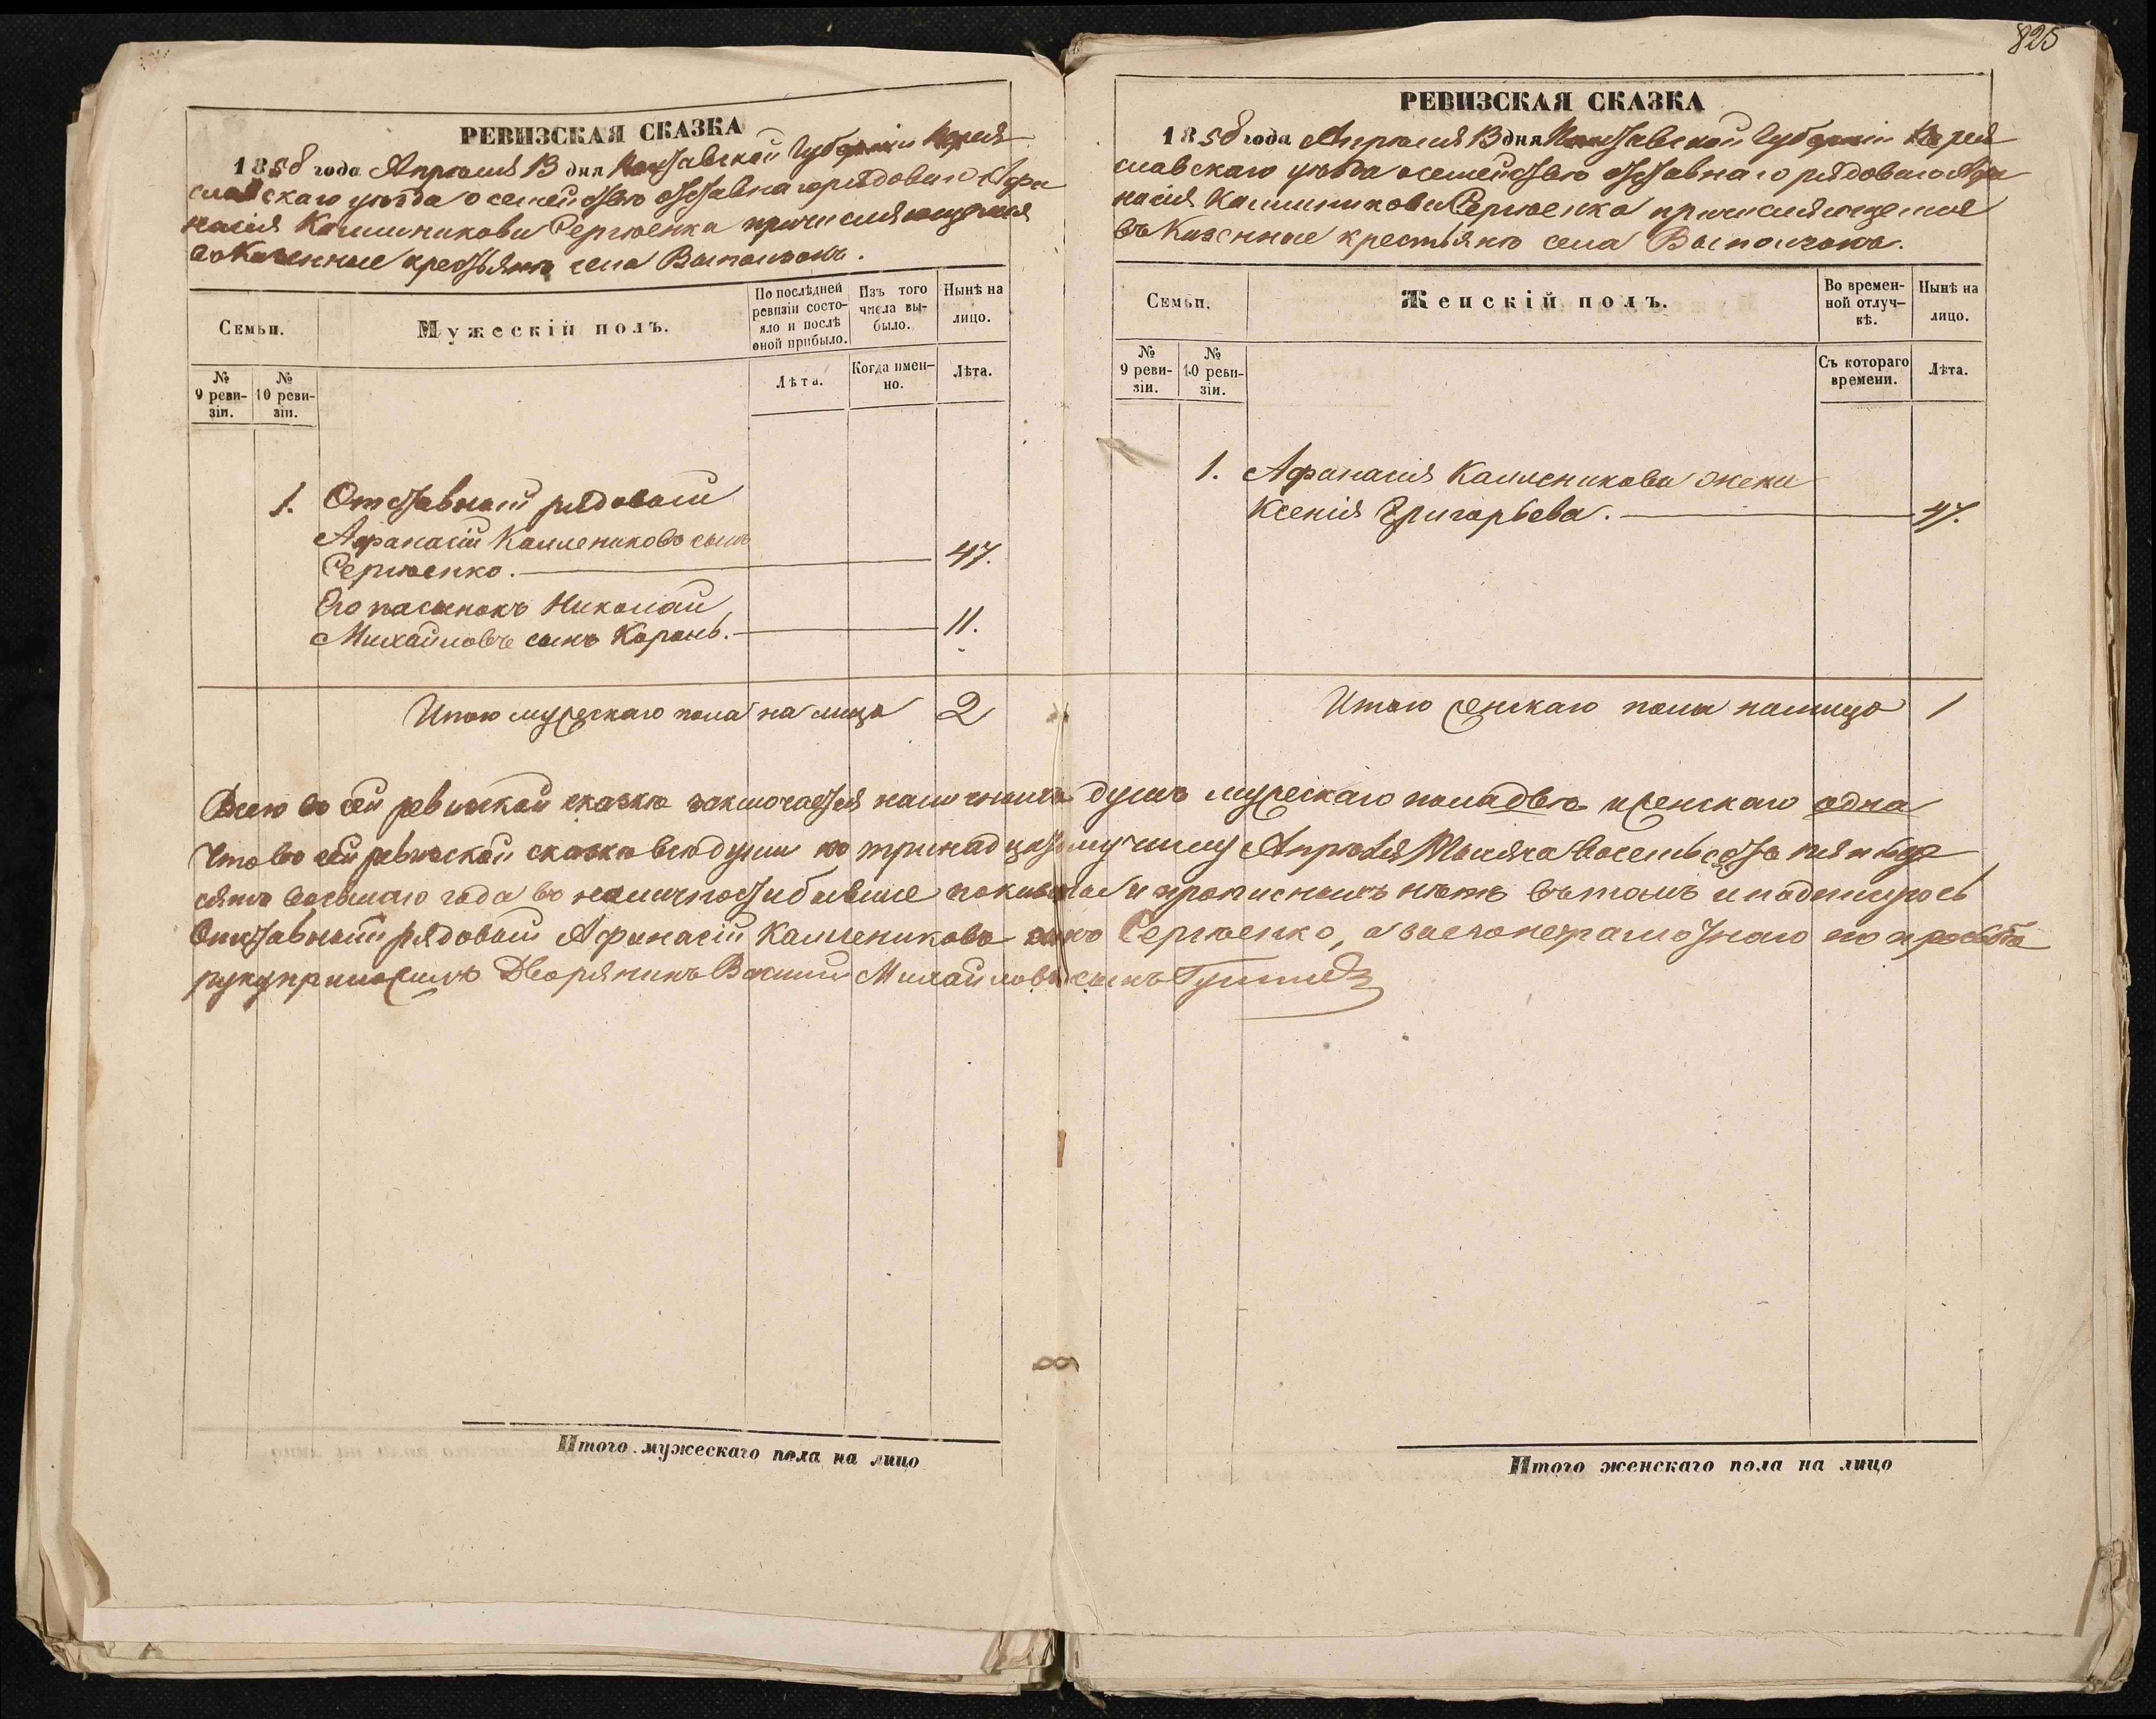 825
РЕВИЗСКАЯ СКАЗКА
1858 года Апрѣля 13 дня Полтавской Губерніи Перея
славскаго уѣзда о семействѣ отставнаго рядоваго Афа
насія Калленикова Сергѣенка причисляющемся
въ Казенные крестьянѣ села Выползокъ.
Семьи.
Мужескій полъ.
По послѣдней
ревизіи состо-
яло и послѣ
оной прибыло.
Изъ того
числа вы-
было.
Нынѣ на
лицо.
№
9 реви-
зіи.
№
10 реви-
зіи.
Лѣта.
Когда имен-
но.
Лѣта.
1. Отставный рядовый
Афанасій Каллениковъ сынъ
Сергѣенко. 47.
Его пасынокъ Николай
Михайловъ сынъ Корань. 11.
Итого мужескаго пола на лицо 2
РЕВИЗСКАЯ СКАЗКА
1858 года Апрѣля 13 дня Полтавской Губерніи Перея
славскаго уѣзда о семействѣ отставнаго рядоваго Афа
насія Калленикова Сергѣенка причисляющемся
въ Казенные крестьянѣ села Выползокъ.
Семьи.
Женскій полъ.
Во времен-
ной отлуч-
кѣ.
Нынѣ на
лицо.
№
9 реви-
зіи.
№
10 реви-
зіи.
Съ котораго
времени.
Лѣта.
1. Афанасія Калленикова жена
Ксенія Григорьева. 47.
Итого женскаго пола налицо 1
Всего въ сей ревизской сказкѣ заключается наличныхъ душъ мужескаго пола двѣ и женскаго одна
Что въ сей ревизской сказкѣ всѣ души по тринадцатому числу Апрѣля Мѣсяца восемьсотъ пятьде
сятъ восьмаго года въ наличности бывшіе показаны и прописныхъ нѣтъ въ томъ и подпишусь
Отставный рядовый Афанасій Каллениковъ сынъ Сергѣенко, а за его неграмотнаго по прозьбѣ
руку приложилъ Дворянинъ Василій Михайловъ сынъ
Итого мужескаго пола на лицо
Итого женскаго пола на лицо